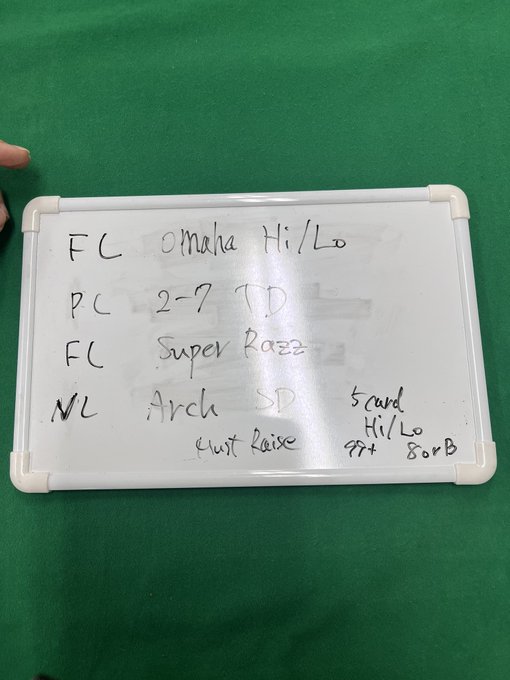 FL Omaha Hi/Lo
PL 2-7 TD
FL Super Razz
NL Arch SD
Must Raise
5 card
Hi/Lo
99+ 8 or B